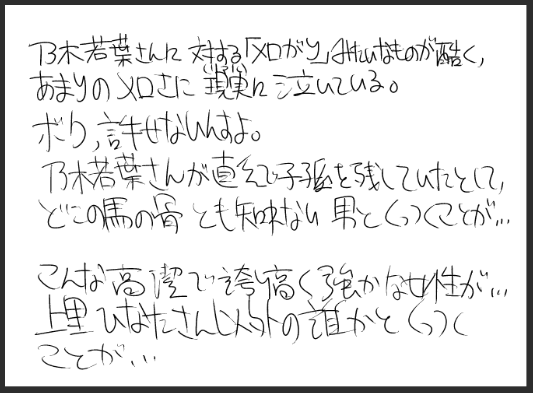 乃木若葉さんに対する「メロがり」みたいなものが酷く、
あまりのメロさに現実に泣いている。
ボク、許せないんすよ。
乃木若葉さんが直系で子孫を残していたとして、
どこの馬の骨とも知らない男とくっつくことが…
こんな高潔で誇り高く強かな女性が…
上里ひなたさん以外の誰かとくっつく
ことが…